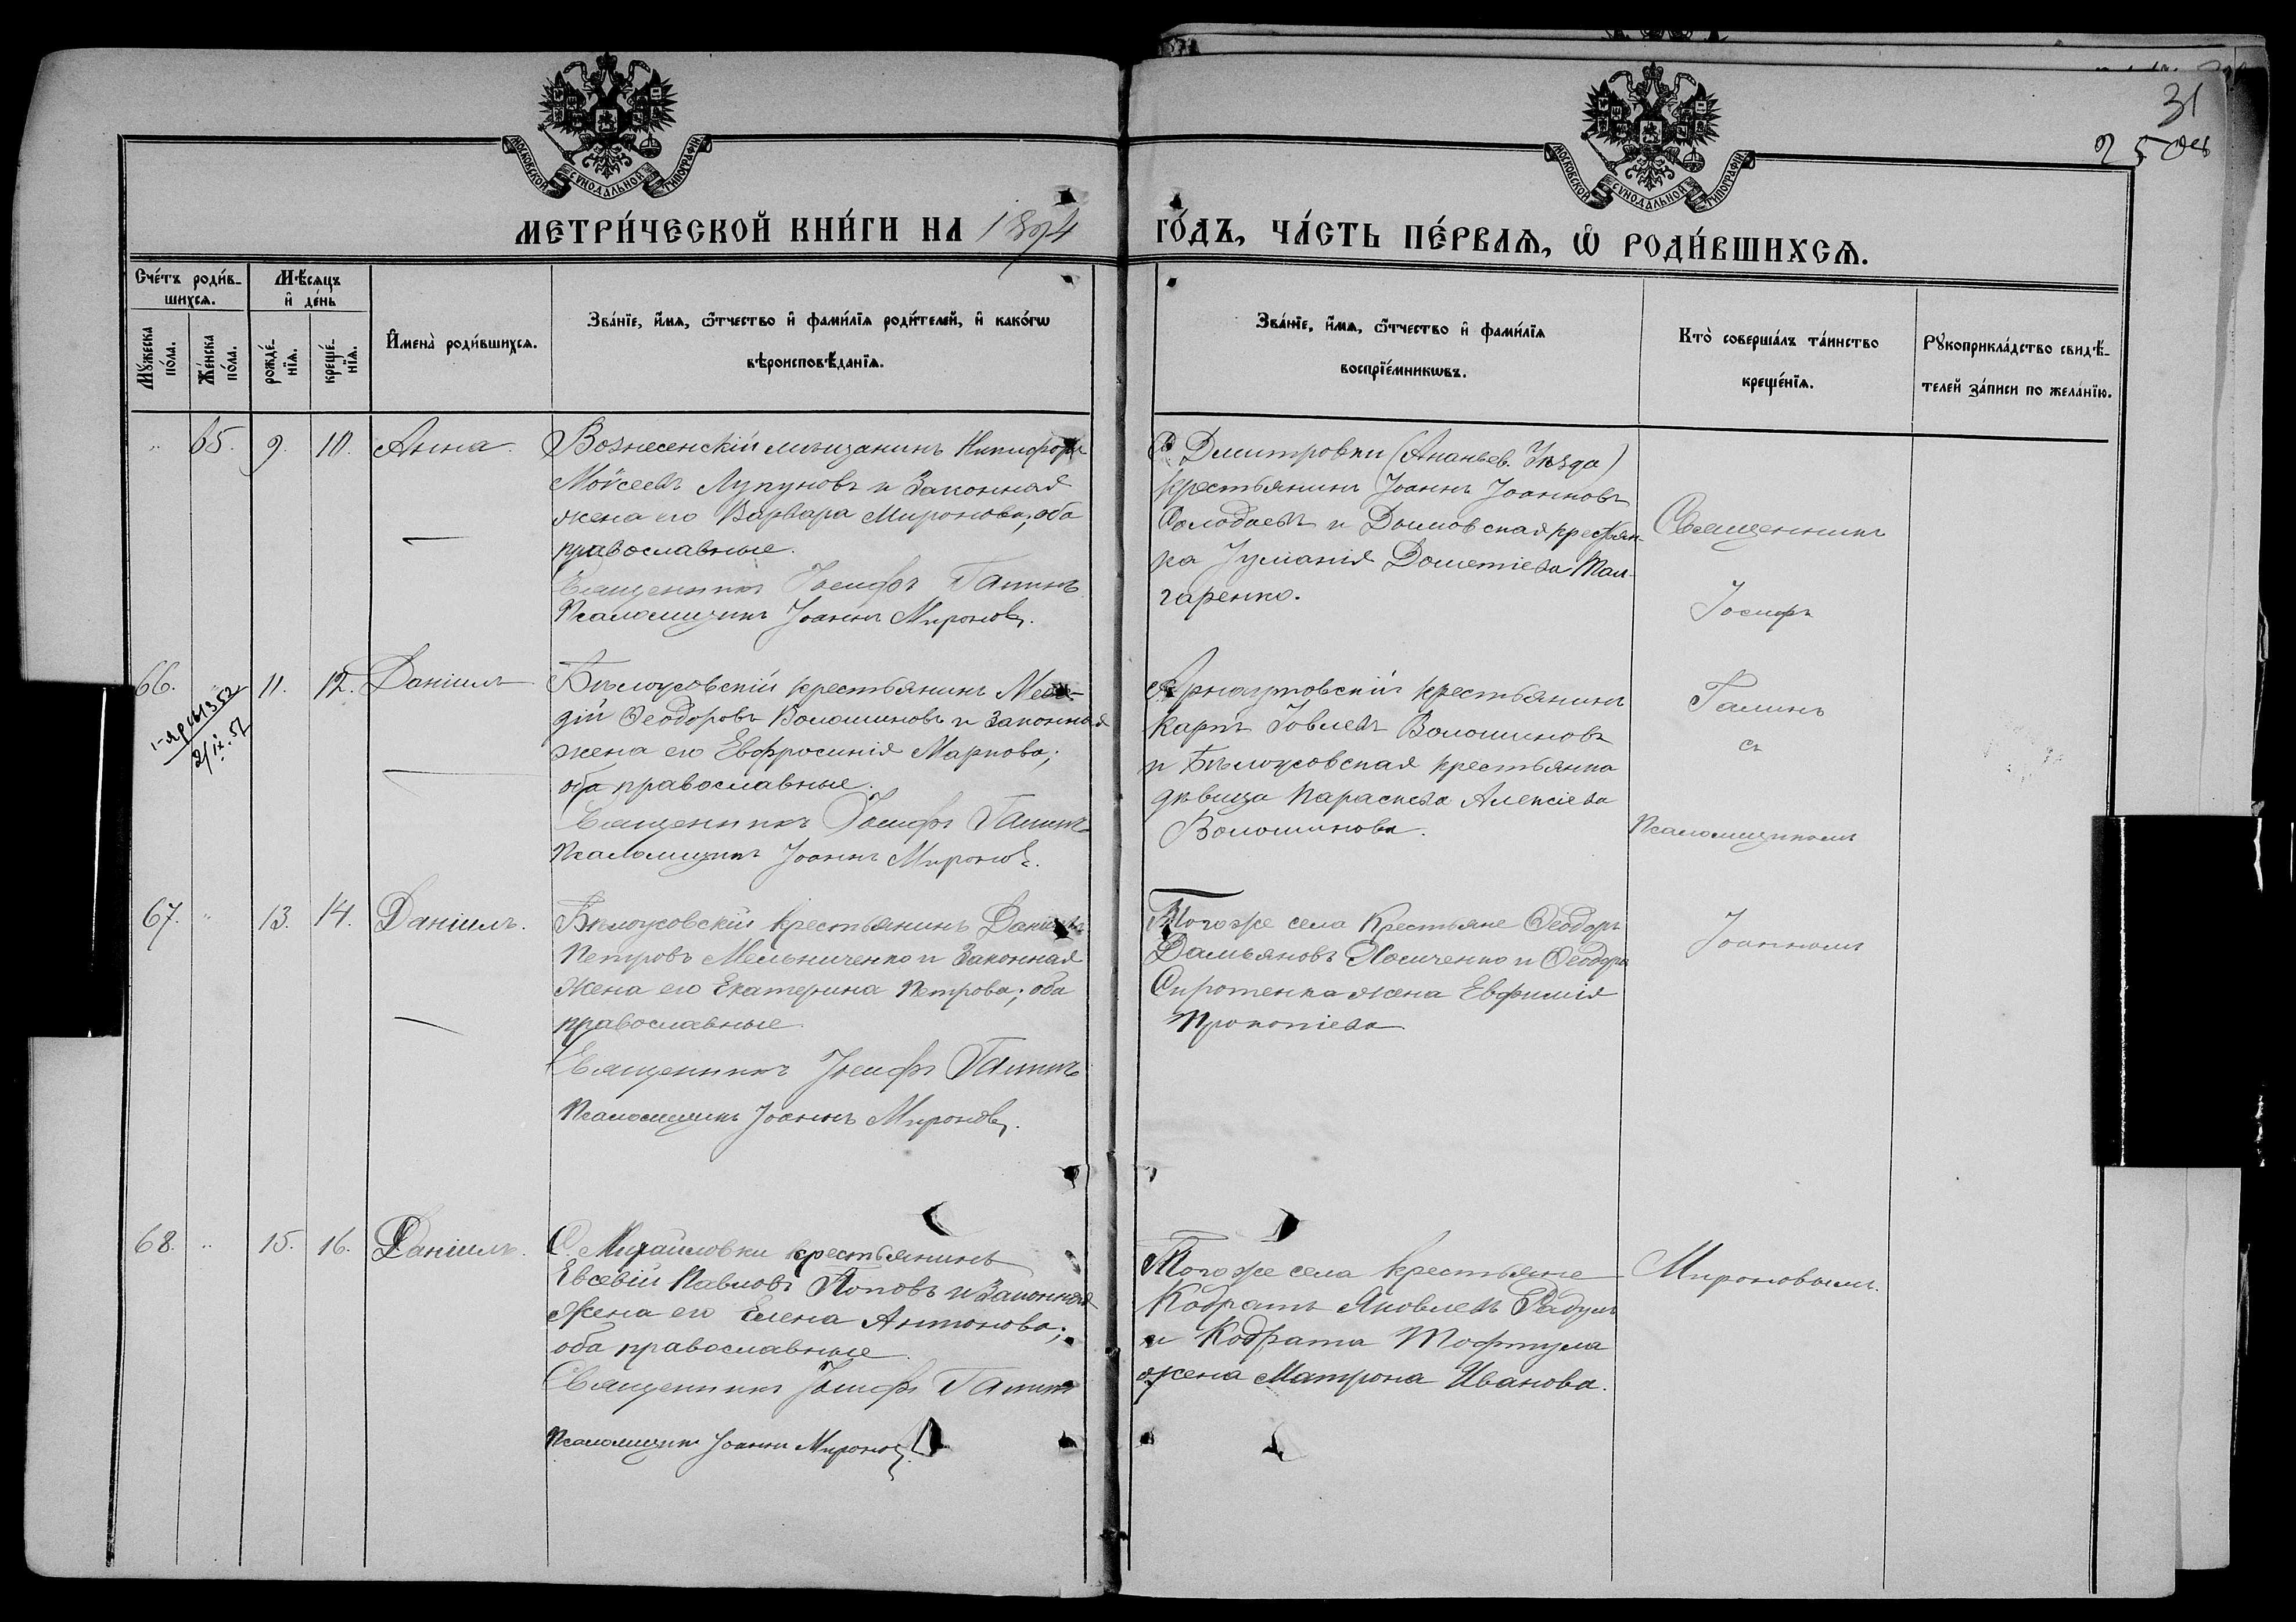 31
250 об
МОСКОВСКОЙ СѴНОДАЛЬНОЙ ТИПОГРАФІИ
МОСКОВСКОЙ СѴНОДАЛЬНОЙ ТИПОГРАФІИ
МЕТРИ́ЧЕСКОЙ КНИ́ГИ НА 1894
ГО́ДЪ, ЧА́СТЬ ПЕ́РВАѦ, Ѡ РОДИ́ВШИХСѦ.
Сче́тъ роди́в-
шихсѧ.
Мꙋжеска по́ла.
Же́нска по́ла.
Мѣ́сѧцъ
и҆ де́нь
рожде́-
нїѧ.
креще́-
нїѧ.
И҆мена̀ роди́вшихсѧ.
Зва́нїе, и҆́мѧ, ѻ҆́тчество и҆ фами́лїѧ роди́телей, и҆ како́гѡ
вѣроисповѣ́данїѧ.
Зва́нїе, и҆́мѧ, ѻ҆́тчество и҆ фами́лїѧ
воспрїе́мникѡвъ.
Кто̀ соверша́лъ та́инство
креще́нїѧ.
Рꙋкоприкла́дство свидѣ́-
телей за́писи по жела́нїю.
" 65. 9. 10. Анна.
Вознесенскій мѣщанинъ Никифоръ
Мойсеевъ Лупуновъ и законная
жена его Варвара Миронова; оба
православные.
Священникъ Іосифъ Галинъ
Псаломщикъ Іоаннъ Мироновъ.
С. Дмитровки (Ананьев. Уѣзда)
крестьянинъ Іоаннъ Іоанновъ
Солодаевъ и Дымовская крестьян-
ка Іуліанія Дометіева
гаренко.
66. " 11. 12. Даніилъ
2/IX.52
Бѣлоусовскій крестьянинъ Мефо-
дій Ѳеодоровъ Волошиновъ и законная
жена его Евфросинія Маркова;
оба православные.
Священникъ Іосифъ Галинъ
Псаломщикъ Іоаннъ Мироновъ.
Арнаутовскій крестьянинъ
Карпъ Іовлевъ Волошиновъ
и Бѣлоусовская крестьянка
дѣвица Параскева Алексіева
Волошинова.
67. " 13. 14. Даніилъ.
Бѣлоусовскій крестьянинъ Даніилъ
Петровъ Мельниченко и законная
жена его Екатерина Петрова; оба
православные
Священникъ Іосифъ Галинъ
Псаломщикъ Іоаннъ Мироновъ.
Того же села крестьяне Ѳеодоръ
Дамьяновъ и Ѳеодора
Сиротенка жена Евфимія
Прокопіева
68. " 15. 16. Даніилъ.
С. Михайловки крестьянинъ
Евсевій Павловъ Поповъ и законная
жена его Елена Антонова;
оба православные.
Священникъ Іосифъ Галинъ
Псаломщикъ Іоаннъ Мироновъ
Того же села крестьяне
Кодратъ Яковлевъ Радулъ
и Кодрата Тофтула
жена Матрона Иванова.
Священникъ
Іосифъ
Галинъ
съ
Псаломщикомъ
Іоанномъ
Мироновымъ.